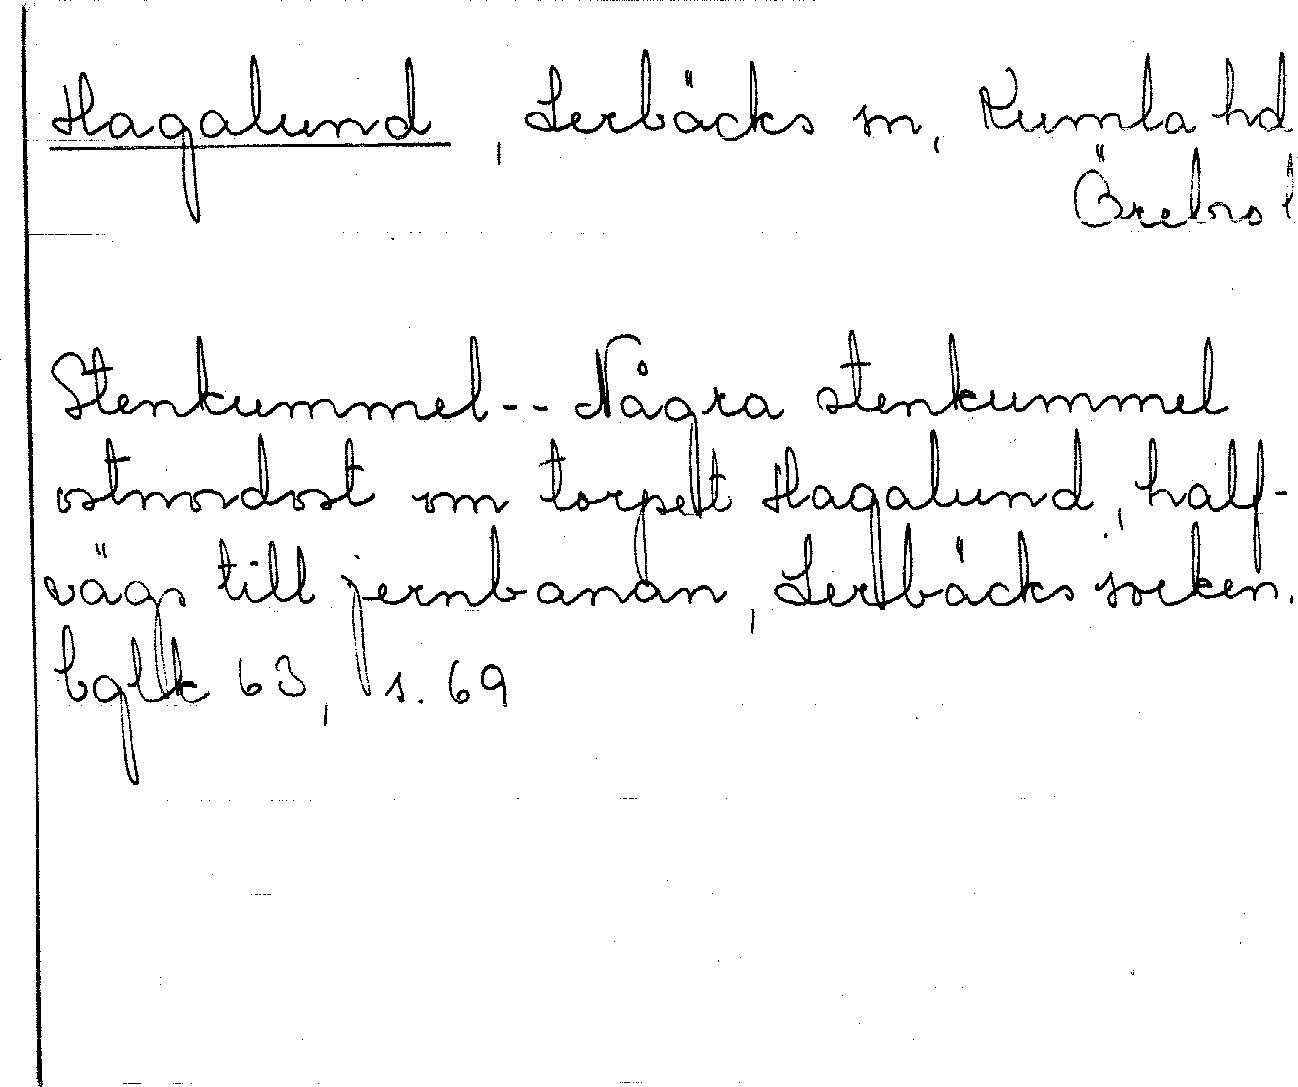 Hagalund, Lerbäcks sn, Kumla hd
Örebro l
Stenkummel-- Några stenkummel
ostnordost om torpet Hagalund, half-
vägs till jernbanan, Lerbäcks socken.
bglk 63, s. 69